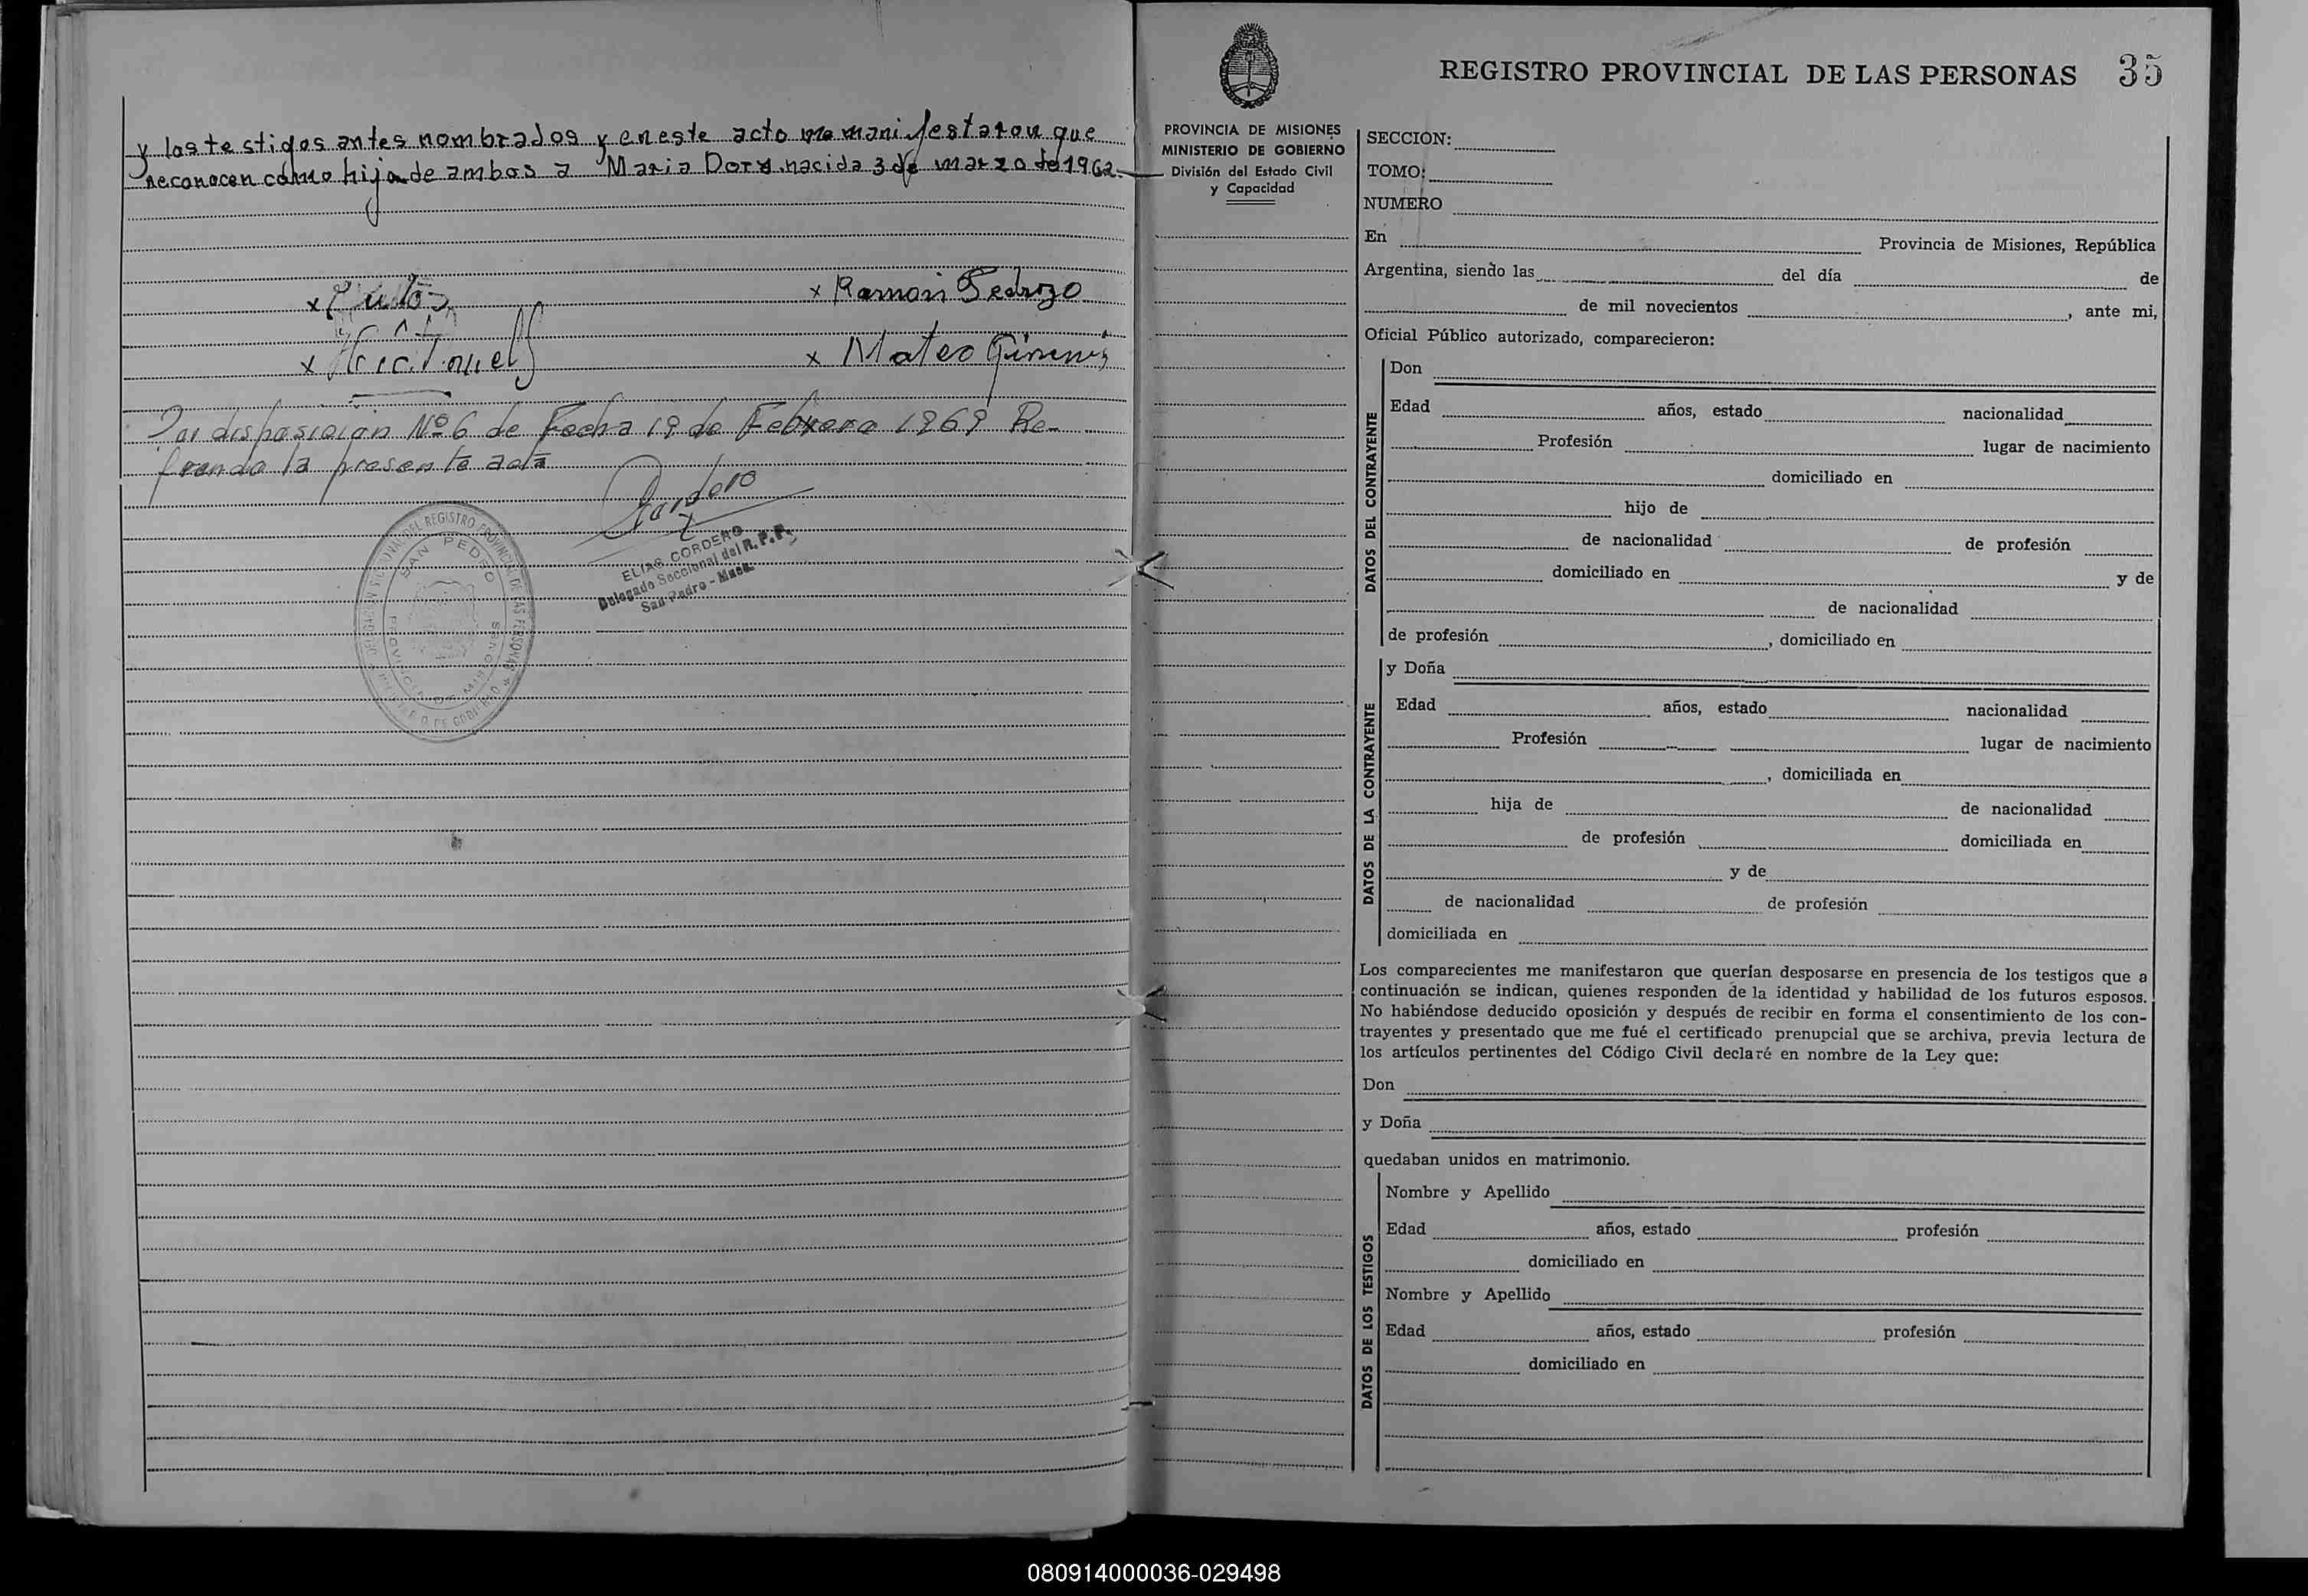 y los testigos antes nombrados y en este acto me manifestaron que
reconocen como hija de ambos a Maria Dora nacida 3 de marzo de 1962.
x
x Ramon Pedrozo
x
x Mateo Gimenez
Por disposicion Nº 6 de Fecha 19 de Febrero 1969 Re-
frendo la presente acta
Cordero
ELIAS CORDERO
Delegado Seccional del R. P. P.
San Pedro - Mnes.
DELEGACION SECCIONAL DEL REGISTRO PROVINCIAL DE LAS PERSONAS
SAN PEDRO
PROVINCIA DE MISIONES
MINISTERIO DE GOBIERNO
REGISTRO PROVINCIAL DE LAS PERSONAS 35
PROVINCIA DE MISIONES
MINISTERIO DE GOBIERNO
División del Estado Civil
y Capacidad
SECCION:
TOMO:
NUMERO
En Provincia de Misiones, República
Argentina, siendo las del día de
de mil novecientos , ante mi,
Oficial Público autorizado, comparecieron:
DATOS DEL CONTRAYENTE
Don
Edad años, estado nacionalidad
Profesión lugar de nacimiento
domiciliado en
hijo de
de nacionalidad de profesión
domiciliado en y de
de nacionalidad
de profesión , domiciliado en
DATOS DE LA CONTRAYENTE
y Doña
Edad años, estado nacionalidad
Profesión lugar de nacimiento
, domiciliada en
hija de de nacionalidad
de profesión domiciliada en
y de
de nacionalidad de profesión
domiciliada en
Los comparecientes me manifestaron que querían desposarse en presencia de los testigos que a
continuación se indican, quienes responden de la identidad y habilidad de los futuros esposos.
No habiéndose deducido oposición y después de recibir en forma el consentimiento de los con-
trayentes y presentado que me fué el certificado prenupcial que se archiva, previa lectura de
los artículos pertinentes del Código Civil declaré en nombre de la Ley que:
Don
y Doña
quedaban unidos en matrimonio.
DATOS DE LOS TESTIGOS
Nombre y Apellido
Edad años, estado profesión
domiciliado en
Nombre y Apellido
Edad años, estado profesión
domiciliado en
080914000036-029498